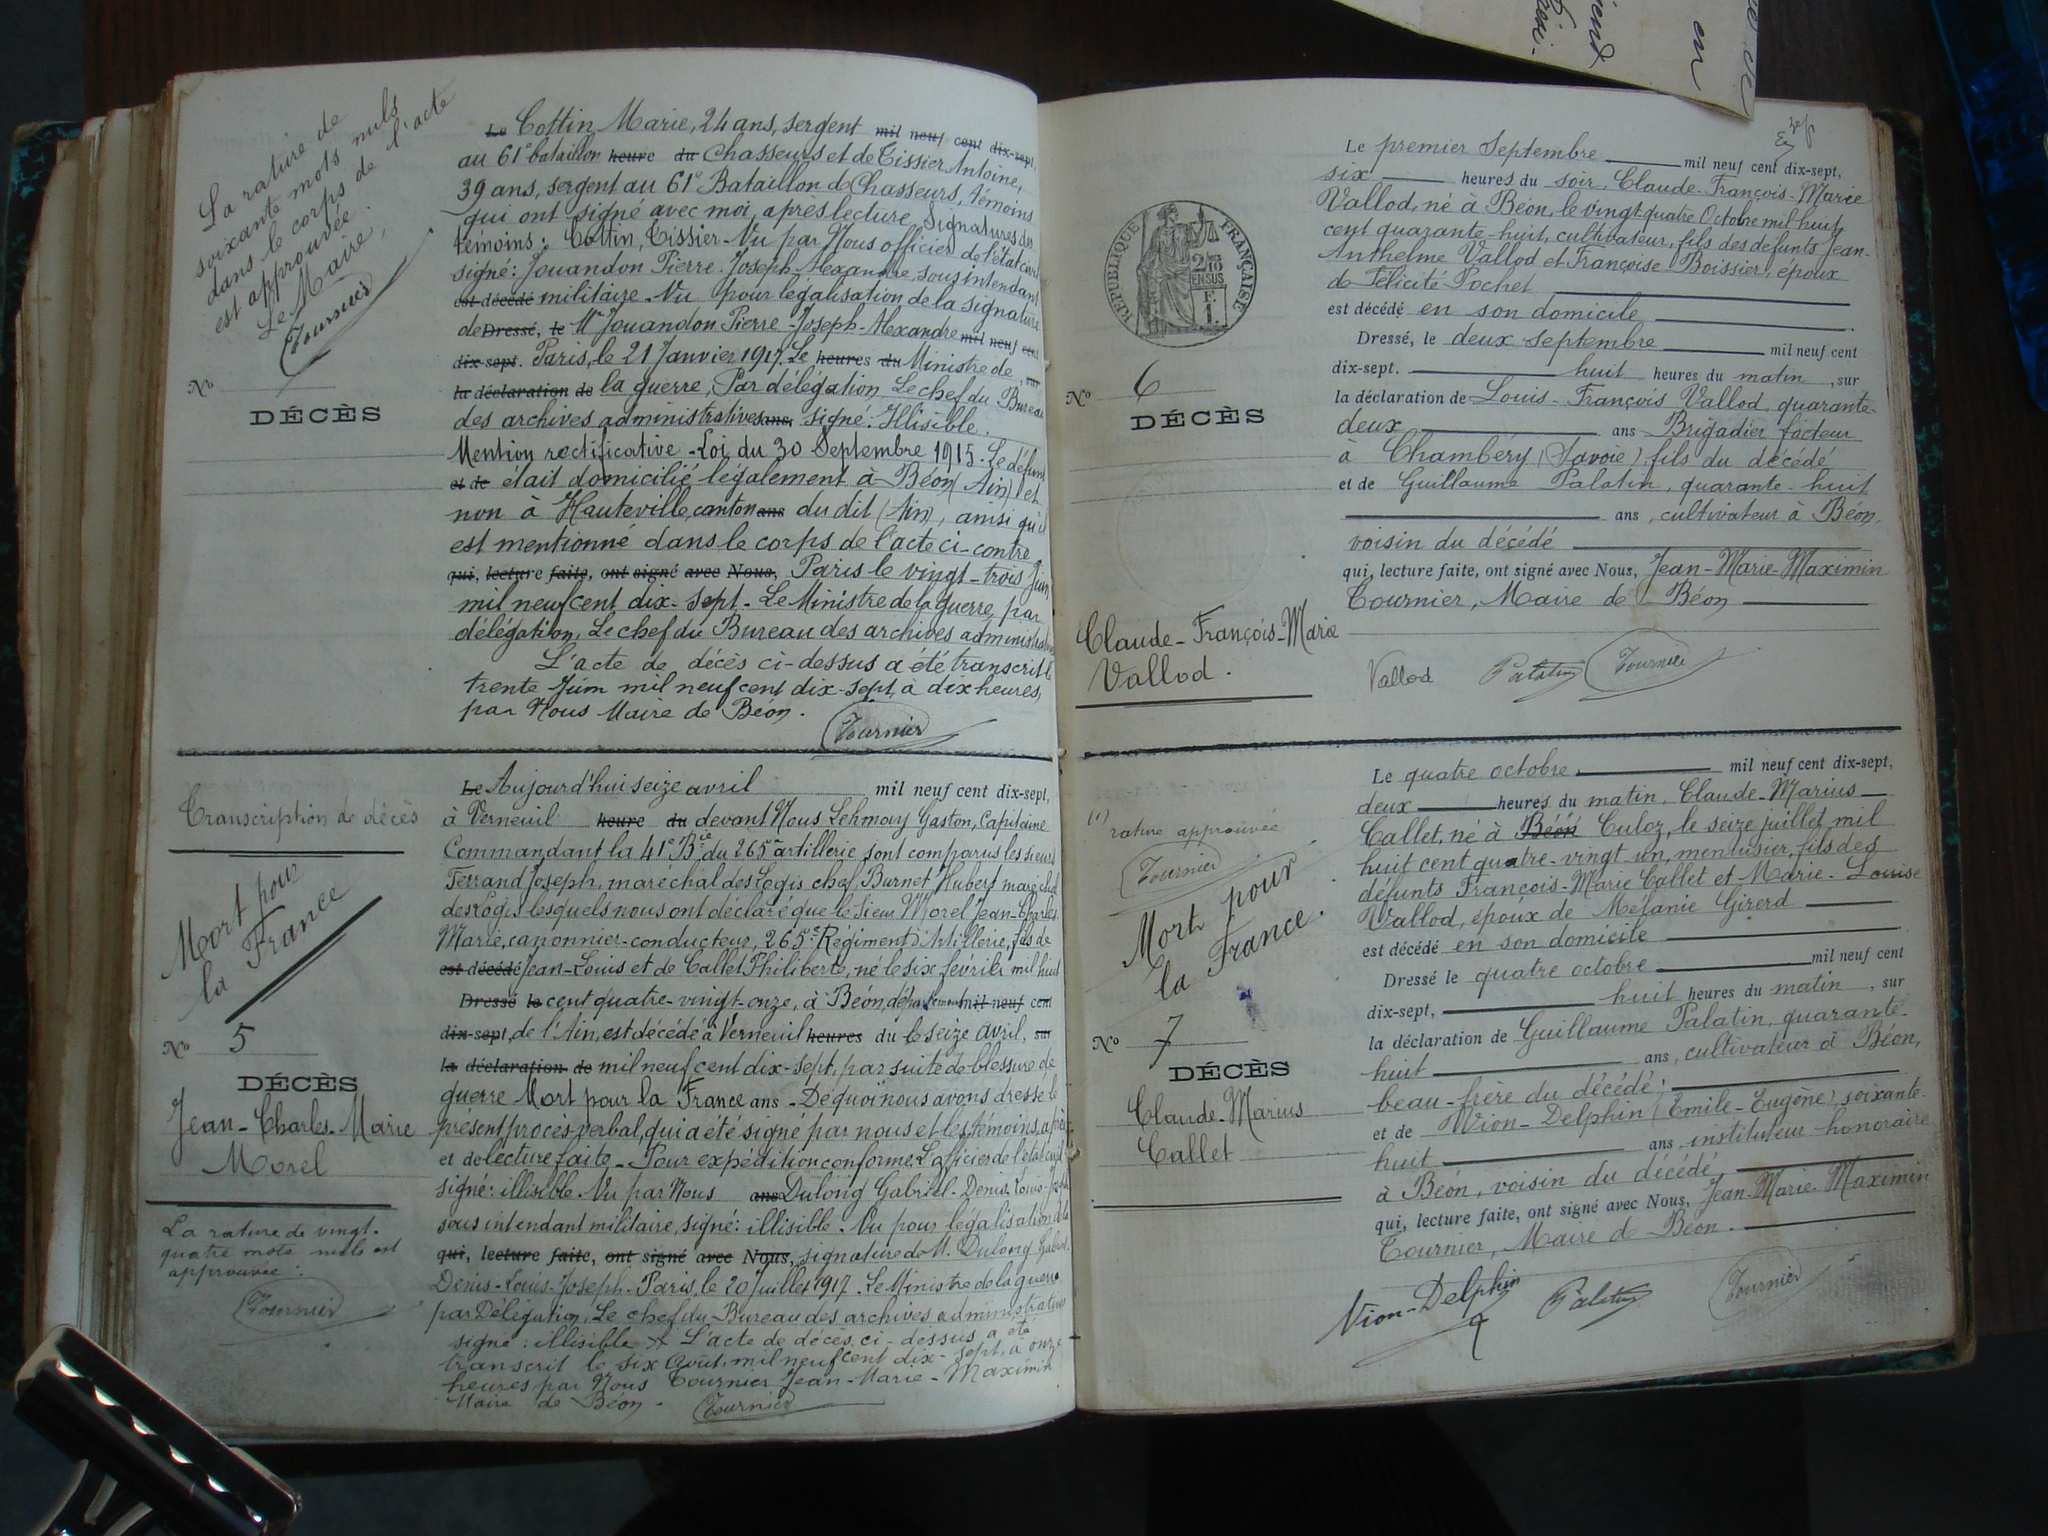 La rature de
soixante mots nuls
dans le corps de l'acte
est approuvée.
Le Maire,
Tournier
No
DÉCÈS
Le Cottin Marie, 24 ans, sergent mil neuf cent dix-sept,
au 61e bataillon heure du Chasseurs et de Tissier Antoine,
39 ans, sergent au 61e Bataillon de Chasseurs, témoins
qui ont signé avec moi, après lecture. Signatures des
témoins: Cottin, Tissier. Vu par Nous officier de l'état civil
signé: Jouandon Pierre-Joseph-Alexandre, sous intendant
est décédé militaire. Vu pour légalisation de la signature
de Dressé, le Mr Jouandon Pierre-Joseph-Alexandre mil neuf cent
dix-sept. Paris, le 21 Janvier 1917. Le heures du Ministre de, sur
la déclaration de la guerre, Par délégation Le chef du Bureau
des archives administratives ans, signé: Illisible.
Mention rectificative - Loi du 30 Septembre 1915. Le défunt
et de était domicilié légalement à Béon (Ain) et
non à Hauteville, canton ans du dit (Ain), ainsi qu'il
est mentionné dans le corps de l'acte ci-contre
qui, lecture faite, ont signé avec Nous, Paris le vingt-trois Juin
mil neuf cent dix-sept - Le Ministre de la guerre, par
délégation, Le chef du Bureau des archives administratives
L'acte de décès ci-dessus a été transcrit le
trente Juin mil neuf cent dix-sept, à dix heures,
par Nous Maire de Béon.
Tournier
Transcription de décès
Mort pour
la France
No 5
DÉCÈS
Jean-Charles-Marie
Morel
La rature de vingt-
quatre mots nuls est
approuvée:
Tournier
Le Aujourd'hui seize avril mil neuf cent dix-sept,
à Verneuil heure du devant Nous Lehmay Gaston, Capitaine
Commandant la 41e Bie du 265e artillerie sont comparus les sieurs
Ferrand Joseph, maréchal des Logis chef, Burnet Hubert maréchal
des Logis lesquels nous ont déclaré que le Sieur Morel Jean-Charles
Marie, canonnier-conducteur, 265e Régiment d'Artillerie, fils de
est décédé Jean-Louis et de Callet Philiberte, né le six février mil huit
Dressé le cent quatre-vingt-onze, à Béon, département mil neuf cent
dix-sept, de l'Ain, est décédé à Verneuil heures du le seize avril, sur
la déclaration de mil neuf cent dix-sept, par suite de blessure de
guerre Mort pour la France ans - De quoi nous avons dressé le
présent procès verbal, qui a été signé par nous et les témoins, après
et de lecture faite - Pour expédition conforme. L'officier de l'état civil
signé: illisible. Vu par Nous ans Dulong Gabriel-Denis-Louis-Joseph
sous intendant militaire, signé: illisible. Vu pour légalisation de la
qui, lecture faite, ont signé avec Nous, signature de M. Dulong Gabriel
Denis-Louis-Joseph. Paris, le 20 Juillet 1917. Le Ministre de la guerre
par Délégation, Le chef du Bureau des archives administratives
signé: illisible L'acte de décès, ci-dessus a été
transcrit le six Août, mil neuf cent dix-sept, à onze
heures par Nous Tournier Jean-Marie-Maximin
Maire de Béon.
Tournier
RÉPUBLIQUE FRANÇAISE
2/10
EN SUS
1 F.
No 6
DÉCÈS
Claude-François-Marie
Vallod.
Le premier Septembre mil neuf cent dix-sept,
six heures du soir, Claude-François-Marie
Vallod, né à Béon, le vingt quatre Octobre mil huit
cent quarante-huit, cultivateur, fils des défunts Jean-
Anthelme Vallod et Françoise Boissier, époux
de Félicité Pochet
est décédé en son domicile
Dressé, le deux septembre mil neuf cent
dix-sept. huit heures du matin, sur
la déclaration de Louis-François Vallod, quarante-
deux ans Brigadier facteur
à Chambéry (Savoie), fils du décédé
et de Guillaume Palatin, quarante-huit
ans, cultivateur à Béon,
voisin du décédé
qui, lecture faite, ont signé avec Nous, Jean-Marie-Maximin
Tournier, Maire de Béon
Vallod Palatin Tournier
(1) rature approuvée
Tournier
Mort pour
la France.
No 7
DÉCÈS
Claude-Marius
Callet
Le quatre octobre, mil neuf cent dix-sept,
deux heures du matin, Claude-Marius
Callet, né à Béon Culoz, le seize juillet mil
huit cent quatre-vingt un, menuisier, fils des
défunts François-Marie Callet et Marie-Louise
Vallod, époux de Mélanie Girerd
est décédé en son domicile
Dressé le quatre octobre mil neuf cent
dix-sept, huit heures du matin, sur
la déclaration de Guillaume Palatin, quarante-
huit ans, cultivateur à Béon,
beau-frère du décédé;
et de Vion-Delphin (Emile-Eugène) soixante-
huit ans, instituteur honoraire
à Béon, voisin du décédé,
qui, lecture faite, ont signé avec Nous, Jean-Marie-Maximin
Tournier, Maire de Béon.
Vion-Delphin Palatin Tournier